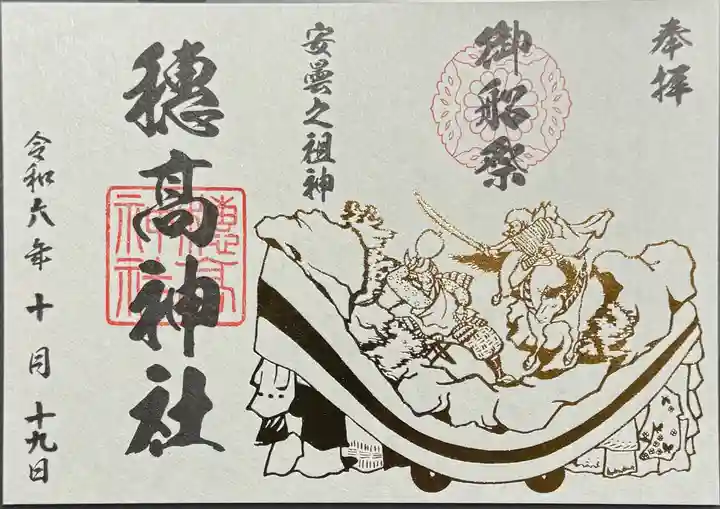 奉拝
御船祭
安曇之祖神
穂髙神社
穂髙
神社
令和六年十月十九日